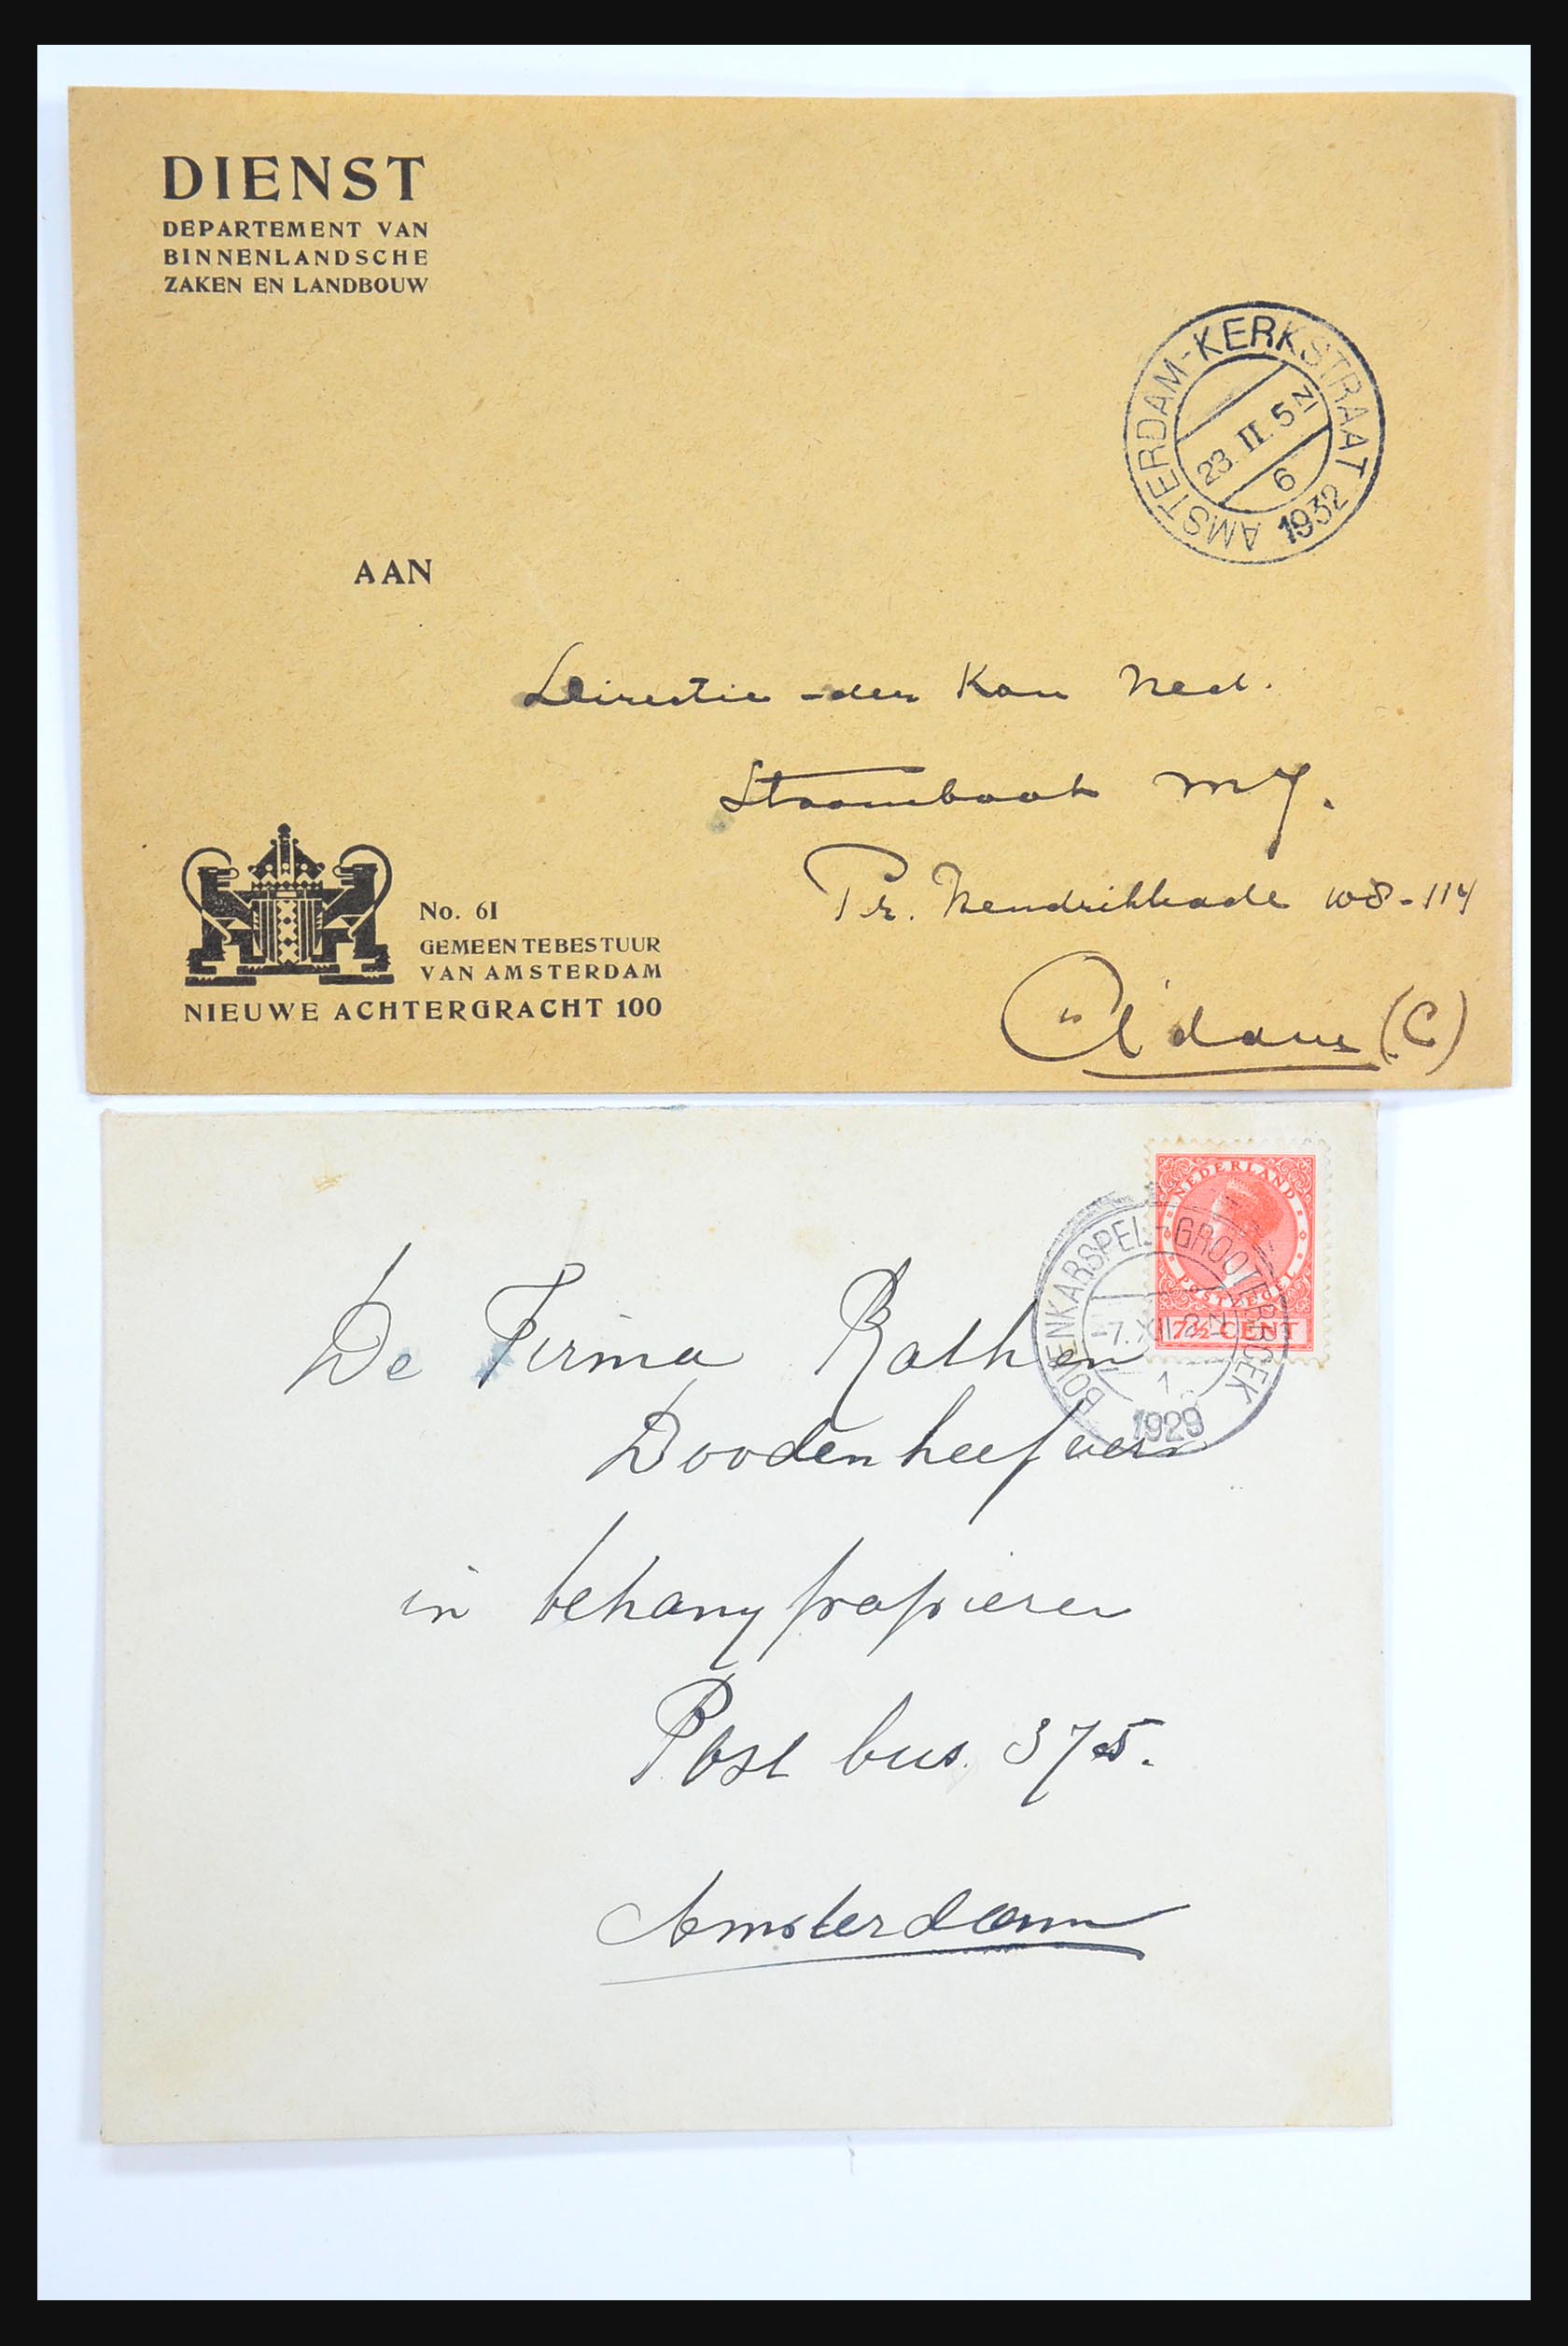 DIENST
DEPARTEMENT VAN
BINNENLANDSCHE
ZAKEN EN LANDBOUW
AMSTERDAM-KERKSTRAAT
23.II.5N
6
1932
AAN
Directie der Kon Ned.
Stoomboot Mij.
Pr. Hendrikkade 108-114
A'dam (C)
No. 61
GEMEENTEBESTUUR
VAN AMSTERDAM
NIEUWE ACHTERGRACHT 100
NEDERLAND
POSTZEGEL
7½ CENT
BOVENKARSPEL-GROOTEBROEK
-7.XII
1
1929
De Firma Rath en
Doodenheefver
in behangpapieren
Post bus. 375.
Amsterdam